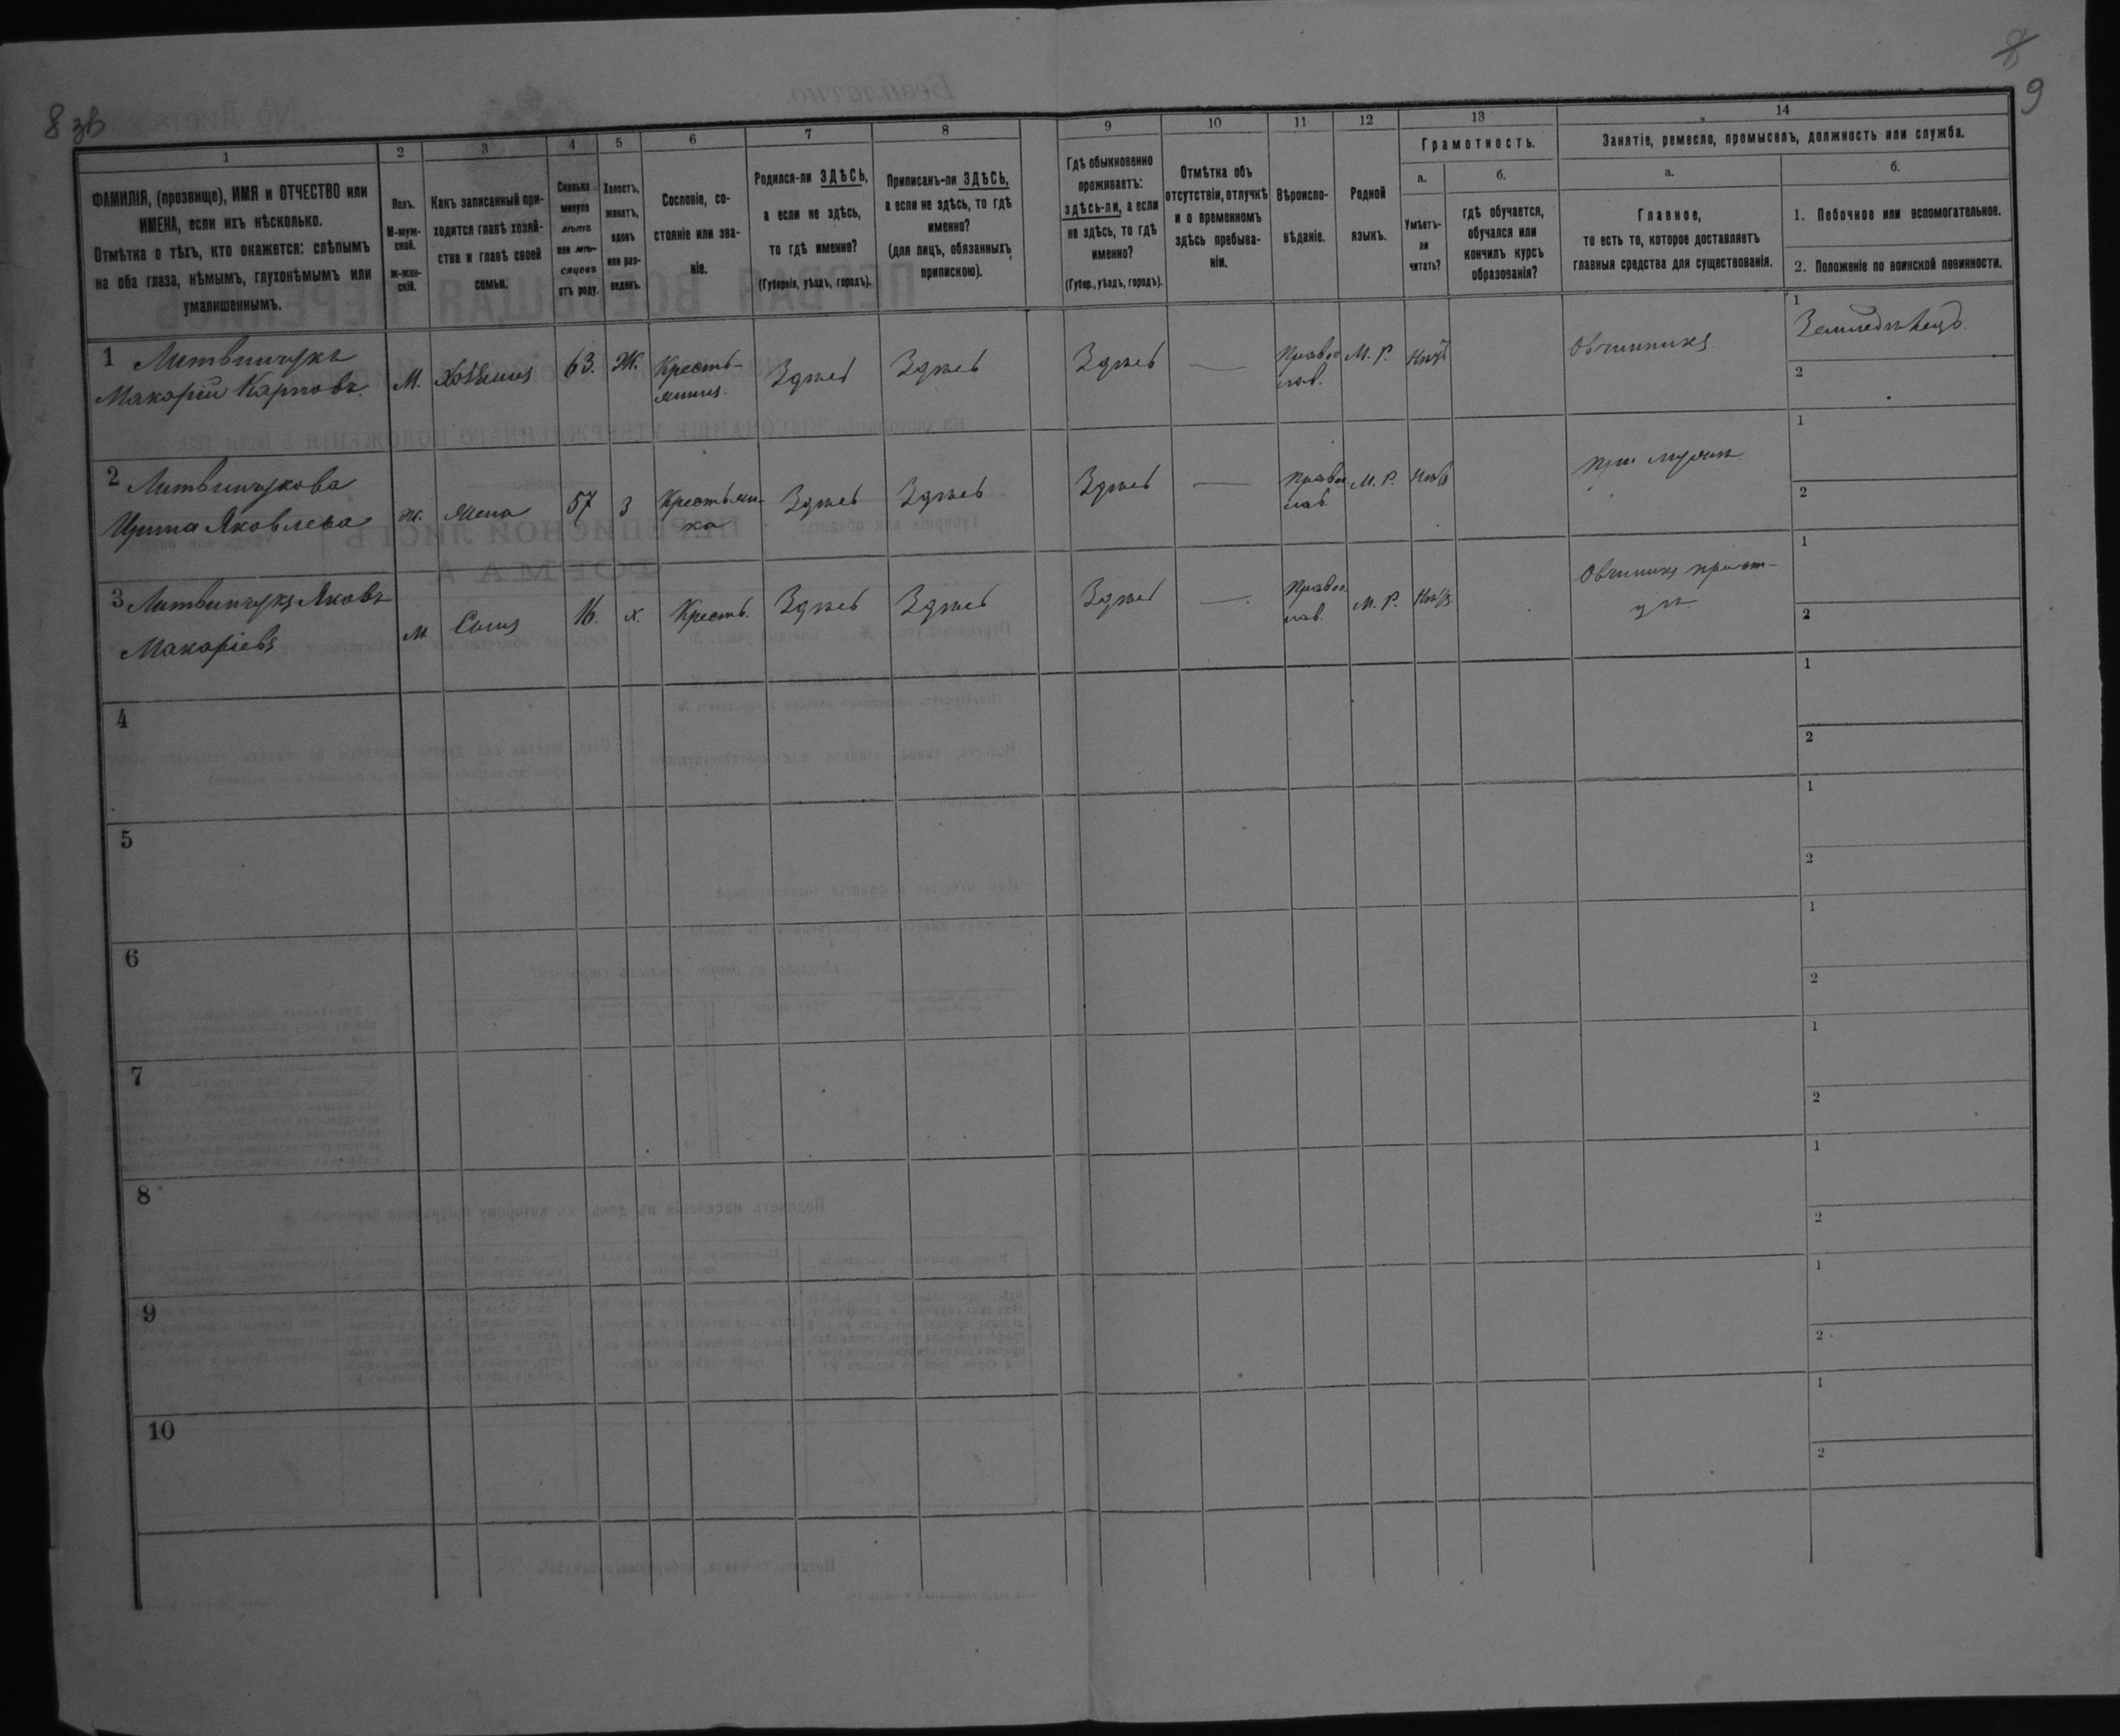 8 зв
9
1
2
3
4
5
6
7
8
9
10
11
12
13
14
ФАМИЛІЯ, (прозвище), ИМЯ и ОТЧЕСТВО или
ИМЕНА, если ихъ нѣсколько.
Отмѣтка о тѣхъ, кто окажется: слѣпымъ
на оба глаза, нѣмымъ, глухонѣмымъ или
умалишеннымъ.
Полъ.
М-муж-
ской.
ж-жен-
скій.
Какъ записанный при-
ходится главѣ хозяй-
ства и главѣ своей
семьи.
Сколько
минуло
лѣтъ
или мѣ-
сяцевъ
отъ роду.
Холостъ,
женатъ,
вдовъ
или раз-
веденъ.
Сословіе, со-
стояніе или зва-
ніе.
Родился-ли ЗДѢСЬ,
а если не здѣсь,
то гдѣ именно?
(Губернія, уѣздъ, городъ).
Приписанъ-ли ЗДѢСЬ,
а если не здѣсь, то гдѣ
именно?
(для лицъ, обязанныхъ
припискою).
Гдѣ обыкновенно
проживаетъ:
здѣсь-ли, а если
не здѣсь, то гдѣ
именно?
(Губер., уѣздъ, городъ).
Отмѣтка объ
отсутствіи, отлучкѣ
и о временномъ
здѣсь пребыва-
ніи.
Вѣроиспо-
вѣданіе.
Родной
языкъ.
Грамотность.
а.
Умѣетъ-
ли
читать?
б.
гдѣ обучается,
обучался или
кончилъ курсъ
образованія?
Занятіе, ремесло, промыселъ, должность или служба.
а.
Главное,
то есть то, которое доставляетъ
главныя средства для существованія.
б.
1. Побочное или вспомогательное.
2. Положеніе по воинской повинности.
1 Литвинчукъ
Макарій Карповъ. М. Хозяинъ 63. Ж. Кресть-
янинъ. Здѣсь Здѣсь Здѣсь — Правос
лав. М. Р. Нѣтъ Овчинникъ 1 Земледѣлецъ
2
2 Литвинчукова
Ирина Яковлева ж. Жена 57 З Крестьян-
ка Здѣсь Здѣсь Здѣсь — Правос
лав. М. Р. Нѣтъ При мужѣ 1
2
3 Литвинчукъ Яковъ
Макаріевъ М Сынъ 16. х. Кресть. Здѣсь Здѣсь Здѣсь — Правос
лав. М. Р. Нѣтъ Овчинникъ при от-
цѣ 1
2
4 1
2
5 1
2
6 1
2
7 1
2
8 1
2
9 1
2
10 1
2